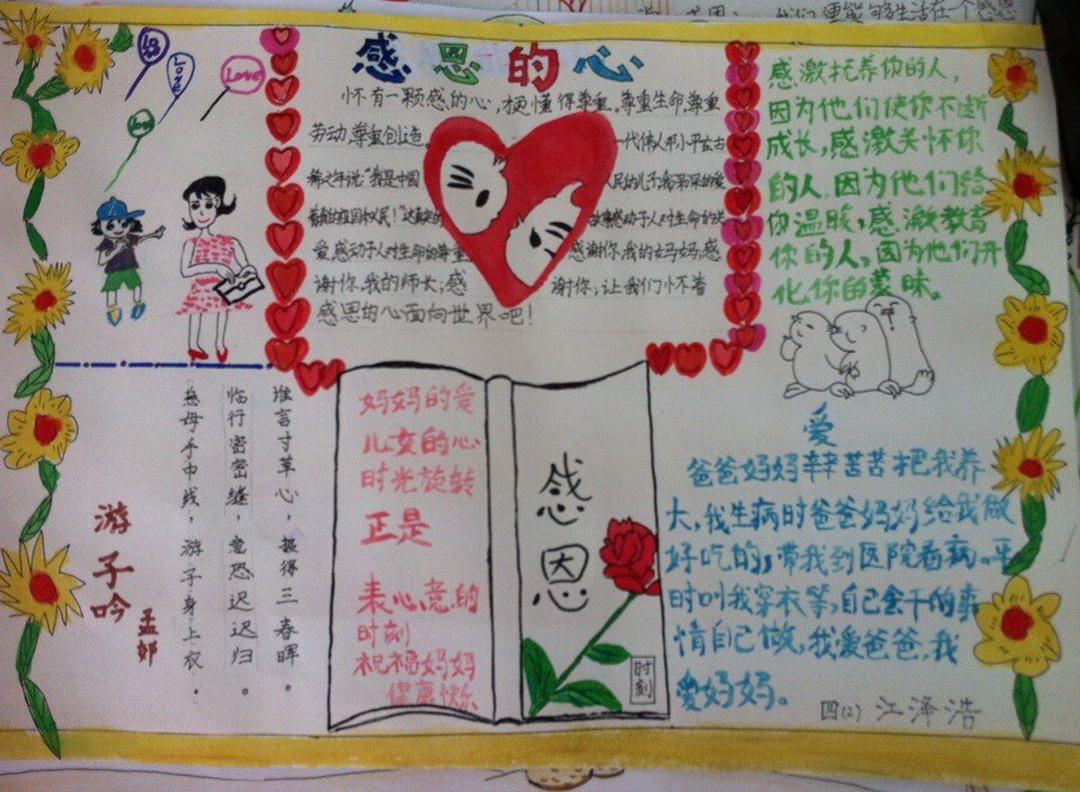 感恩的心
怀有一颗感的心,才懂得尊重。尊重生命,尊重
劳动,尊重创造。
一代伟人邓小平去古
稀之年说:"我是中国
人民的儿子,我深深的爱
着我的祖国和人民!"
故事感动于人对生命的关
爱,感动于人对生命的尊重
感谢你,我的妈妈;感
谢你,我的师长;感
谢你;让我们怀着
感恩的心面向世界吧!
感激抚养你的人,
因为他们使你不断
成长,感激关怀你
的人,因为他们给
你温暖,感激教育
你的人,因为他们开
化你的蒙昧。
Love
Love
游子吟
孟郊
慈母手中线,游子身上衣.
临行密密缝,意恐迟迟归。
谁言寸草心,报得三春晖。
妈妈的爱
儿女的心
时光旋转
正是
表心意的
时刻
祝福妈妈
健康快乐
感恩
时刻
爱
爸爸妈妈辛辛苦苦把我养
大,我生病时爸爸妈妈给我做
好吃的,带我到医院看病。平
时叫我穿衣等,自己会干的事
情自己做,我爱爸爸,我
爱妈妈。
四(2) 江泽浩